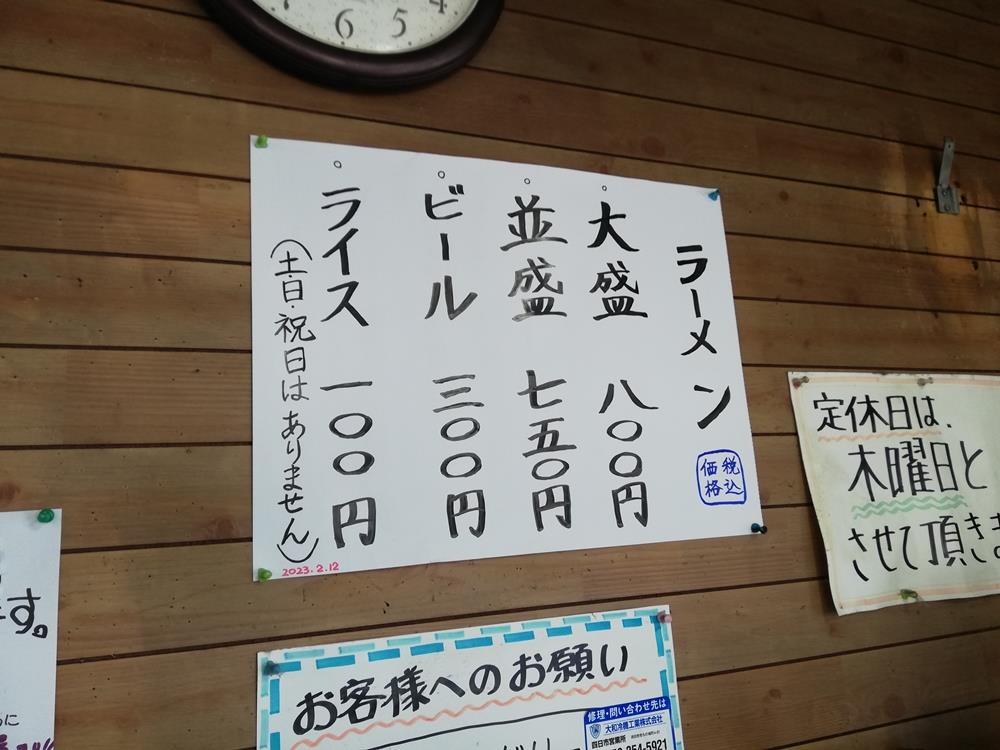 6 5 4
ラーメン
税込
価格
。大盛 八〇〇円
。並盛 七五〇円
。ビール 三〇〇円
。ライス 一〇〇円
(土・日・祝日はありません)
2023.2.12
定休日は、
木曜日と
させて頂きま
す。
お客様へのお願い
修理・問い合わせ先は
大和冷機工業株式会社
四日市営業所
254-5921